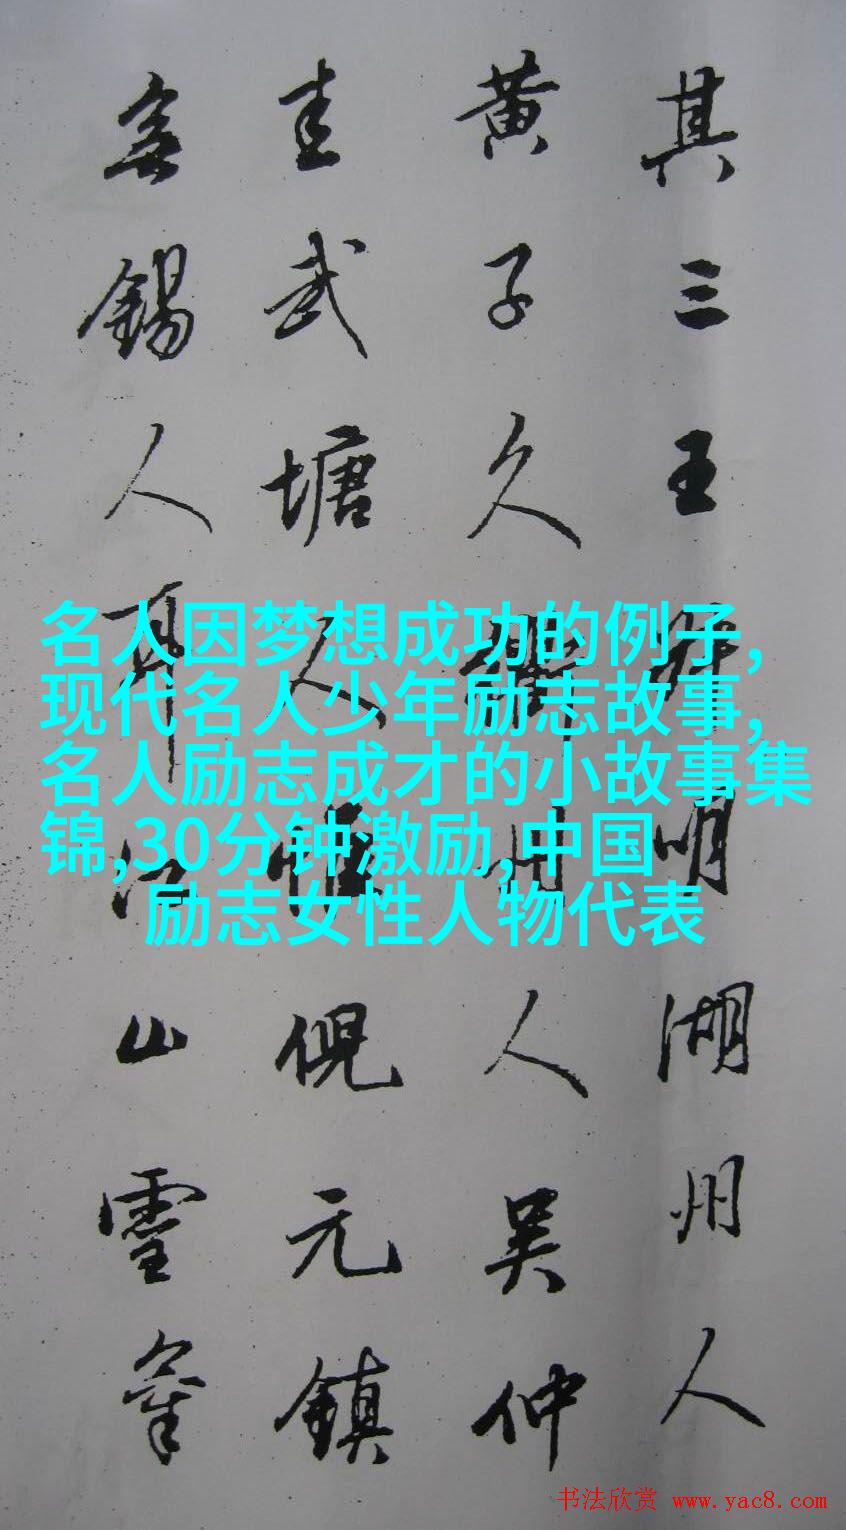 其三王蒙叔明湖州人
黄子久衢州人吴仲
圭武塘人惟倪元镇
无锡人耳江山灵气
名人因梦想成功的例子,
现代名人少年励志故事,
名人励志成才的小故事集
锦,30分钟激励,中国
励志女性人物代表
书法欣赏 www.yac8.com